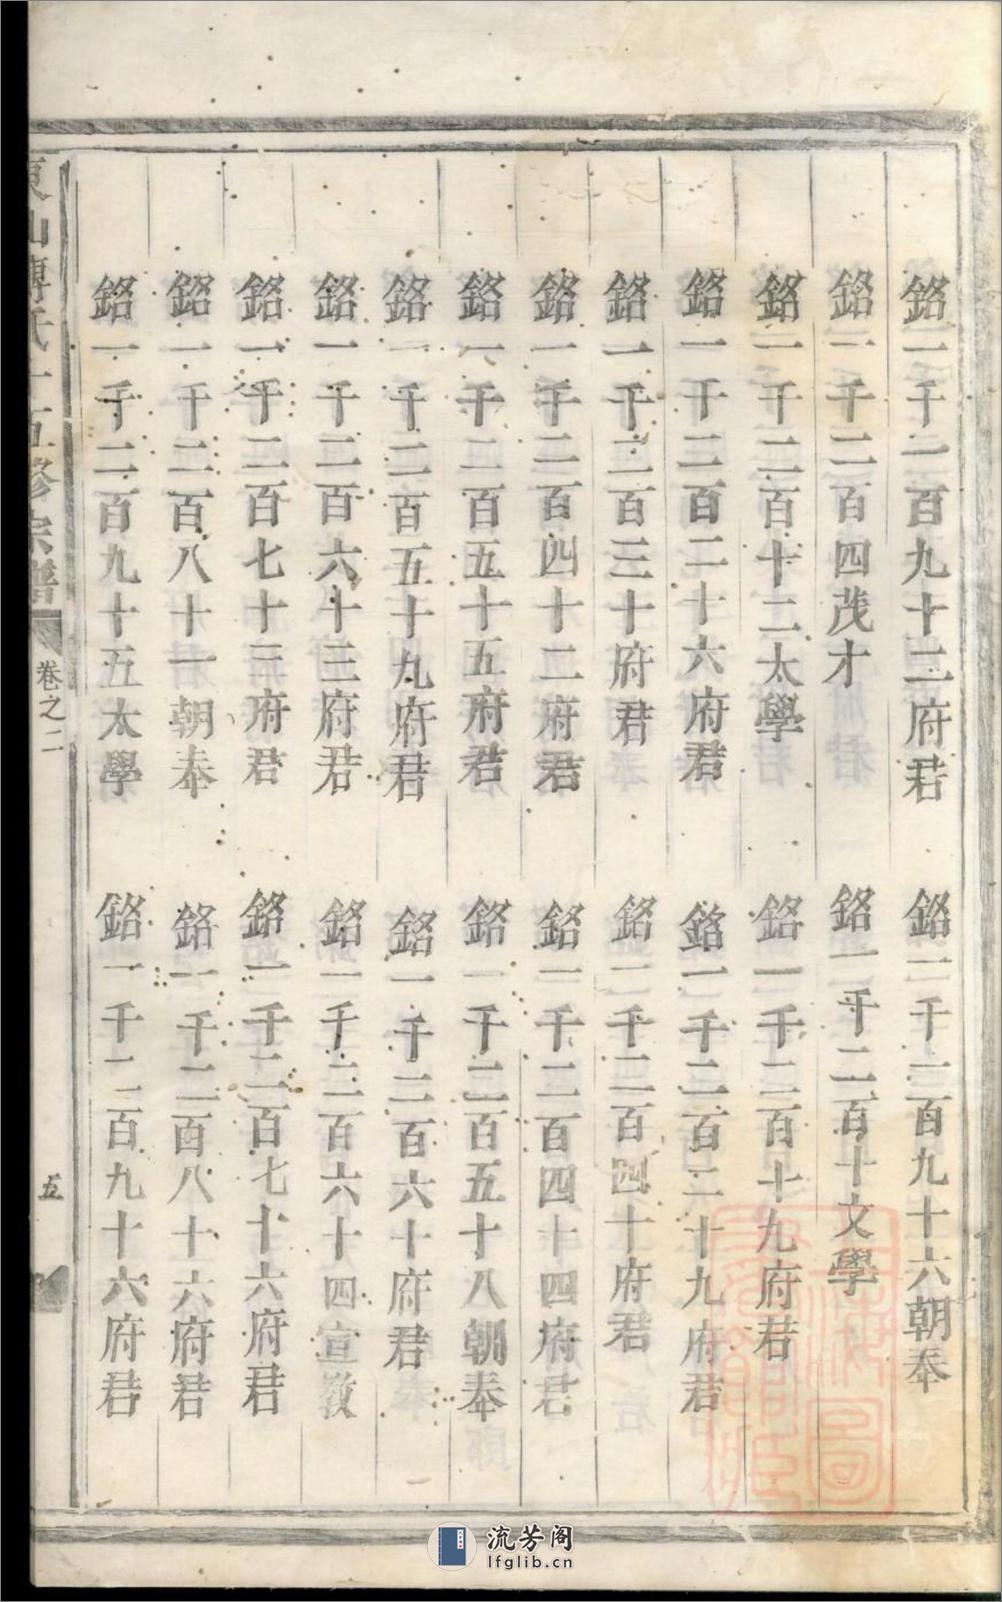 鉻一千一百九十二府君
鉻一千一百九十六朝奉
鉻一千二百四茂才
鉻一千二百十文學
鉻一千二百十二太學
鉻一千二百十九府君
鉻一千二百二十六府君
鉻一千二百二十九府君
鉻一千二百三十府君
鉻一千二百四十府君
鉻一千二百四十二府君
鉻一千二百四十四府君
鉻一千二百五十五府君
鉻一千二百五十八朝奉
鉻一千二百五十九府君
鉻一千二百六十府君
鉻一千二百六十三府君
鉻一千二百六十四宣教
鉻一千二百七十三府君
鉻一千二百七十六府君
鉻一千二百八十一朝奉
鉻一千二百八十六府君
鉻一千二百九十五太學
鉻一千二百九十六府君
東山傅氏十五修宗譜
卷之二
五
流芳阁
lfglib.cn